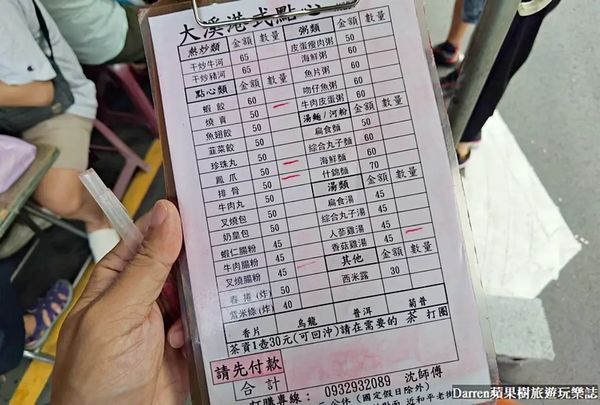 大溪港式點
熱炒類 金額 數量
干炒牛河 65
干炒豬河 65
點心類 金額 數量
蝦餃 60
燒賣 50
魚翅餃 50
韮菜餃 50
珍珠丸 50
鳳爪 50
排骨 50
牛肉丸 50
叉燒包 50
奶皇包 50
蝦仁腸粉 45
牛肉腸粉 45
叉燒腸粉 45
春捲(炸) 50
蘿米條(炸) 40
粥類 金額 數量
皮蛋瘦肉粥 50
海鮮粥 60
魚片粥 60
吻仔魚粥 60
牛肉皮蛋粥 60
湯麵/河粉 金額 數量
扁食麵 50
綜合丸子麵 60
海鮮麵 60
什錦麵 70
湯類 金額 數量
扁食湯 45
綜合丸子湯 45
人蔘雞湯 45
香菇雞湯 45
其他 金額 數量
西米露 30
香片 烏龍 普洱 菊普
茶資1壺30元(可回沖)請在需要的 茶 打圈
請先付款
合計
訂購專線: 0932932089 沈師傅
公休(國定假日除外)
近和平老街
Darren蘋果樹旅遊玩樂誌